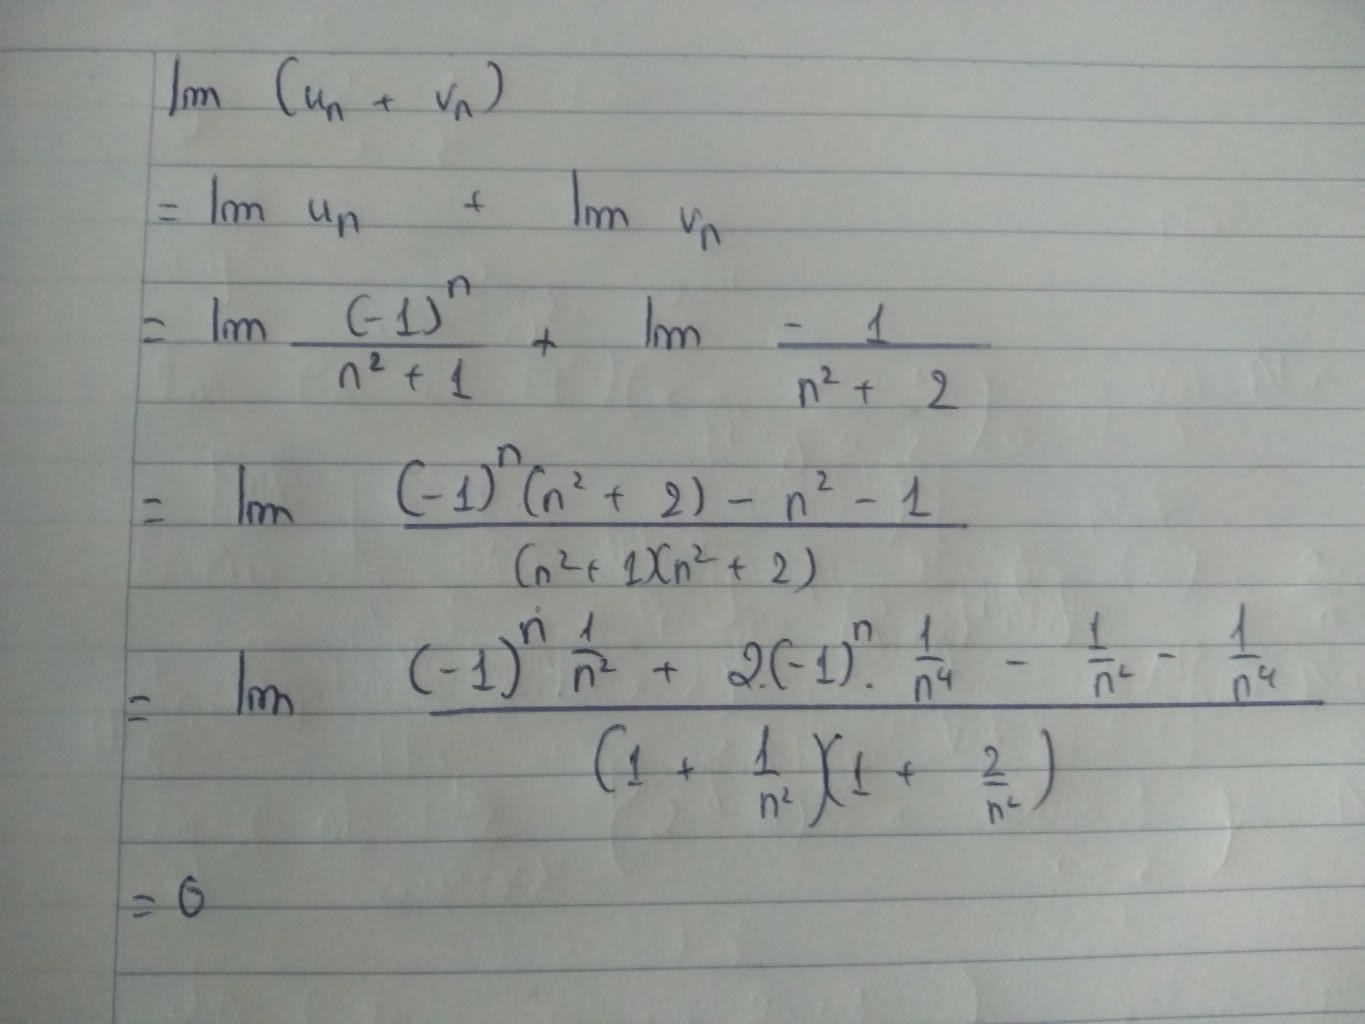 lim (uₙ + vₙ)
= lim uₙ + lim vₙ
= lim (-1)ⁿ/(n² + 1) + lim -1/(n² + 2)
= lim ((-1)ⁿ(n² + 2) - n² - 1)/((n² + 1)(n² + 2))
= lim ((-1)ⁿ · 1/n² + 2.(-1)ⁿ. 1/n⁴ - 1/n² - 1/n⁴)/((1 + 1/n²)(1 + 2/n²))
= 0